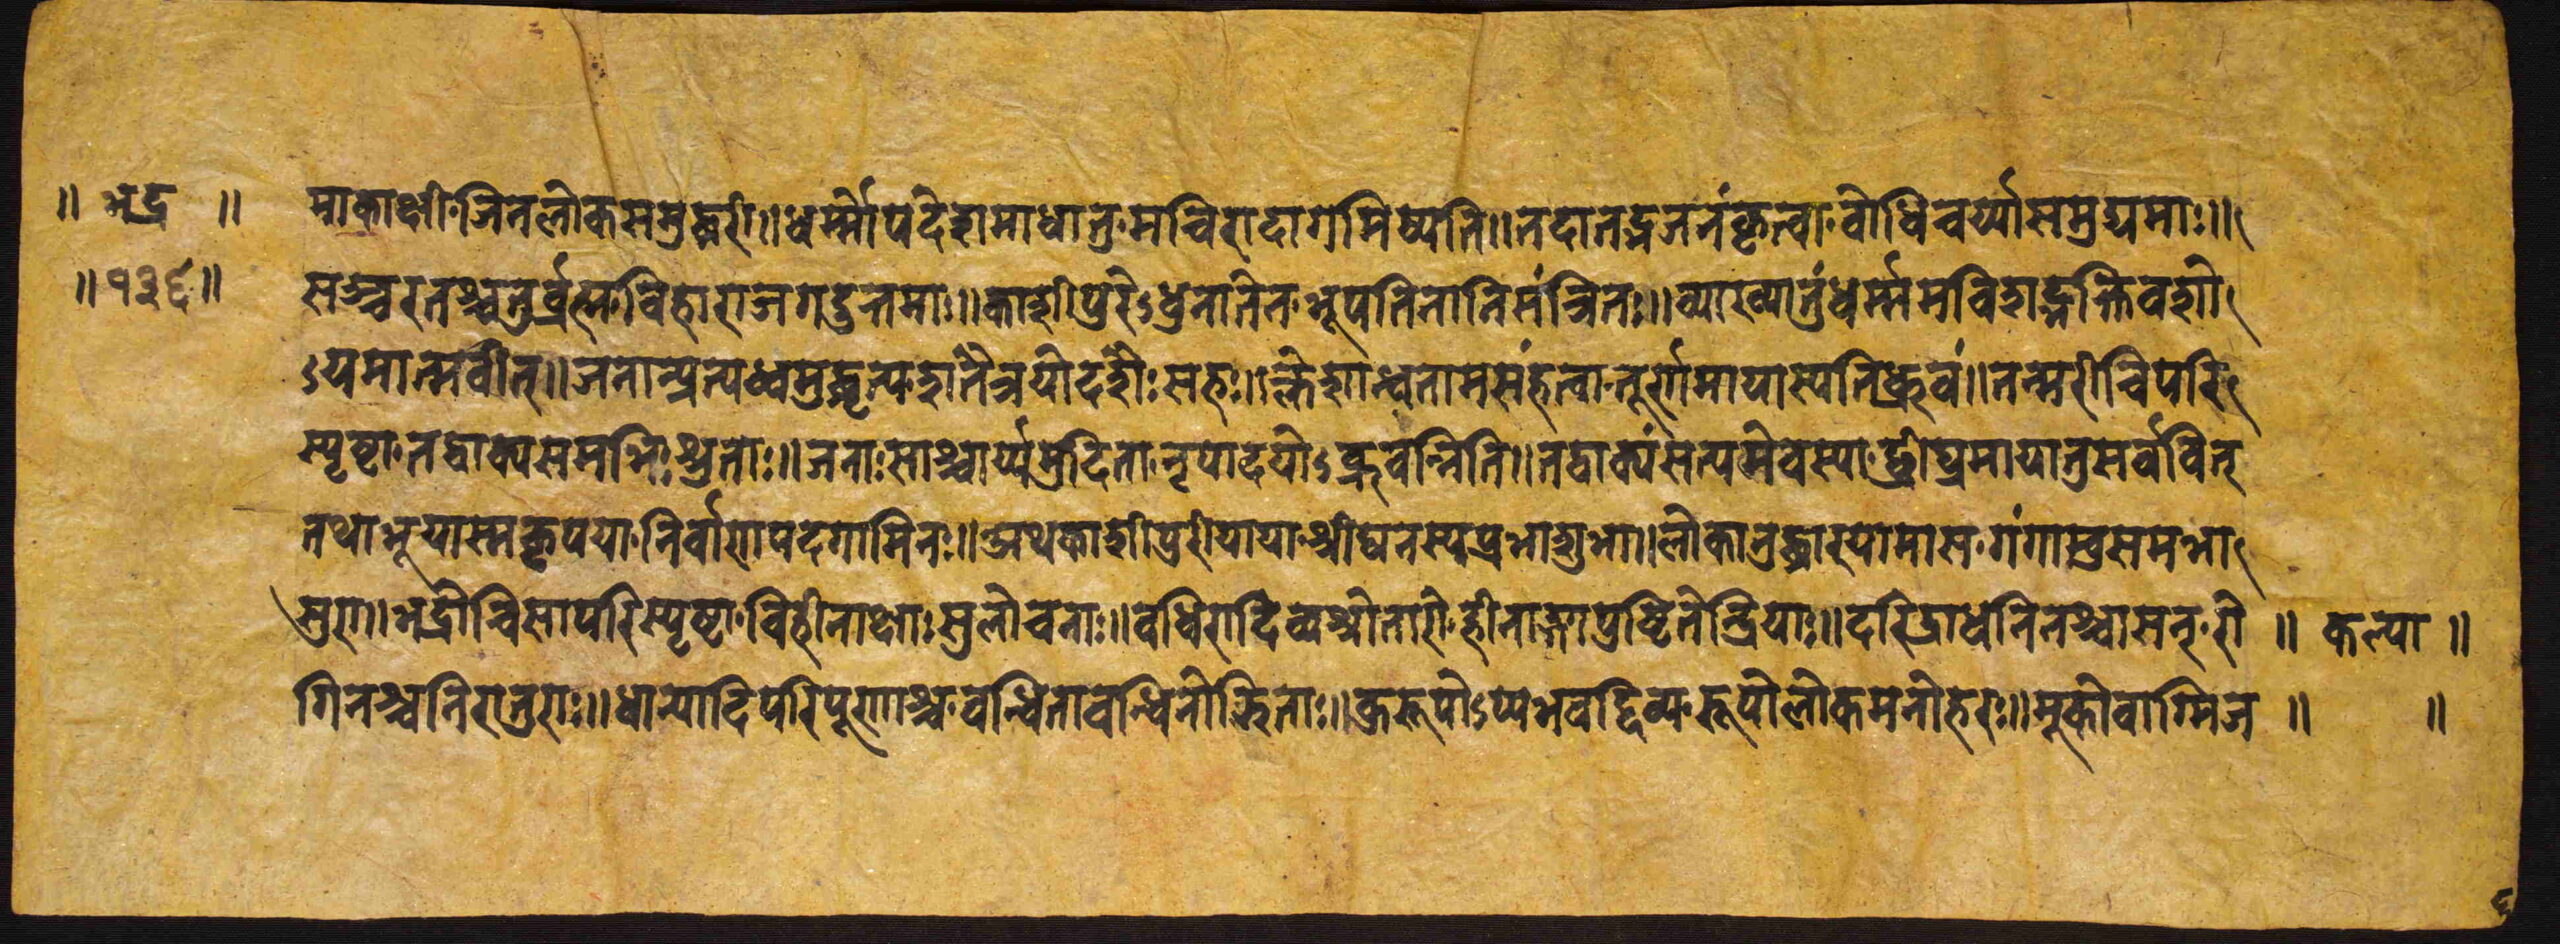 ॥ भद्र ॥ माकाक्षी जिनलोकसमुद्धरी॥धर्म्मोपदेशमाधातु मचिरादागमिष्यति॥तदातद्भजनंकृत्वा बोधिचर्य्यासमुद्यमाः॥
॥१३६॥ सञ्चरतश्चतुर्ब्रह्म विहाराजगदुत्तमाः॥काशीपुरेऽधुनातेन भूपतिनानिमंत्रितः॥व्याख्यातुंधर्म्ममविशद्भक्तिवशो
ऽयमात्मवीत्॥जनान्प्रत्यध्वमुद्धृत्य शनैत्रयोदशैः सह॥क्लेशान्धतामसंहत्वा तूर्णमायास्यतिध्रुवं॥तन्मरीचिपरि
स्पृष्टा तद्वाक्यसमभिः श्रुताः॥जनाःसाश्चार्य्यमुदिता नृपादयोऽब्रूवंन्निति॥तद्वाक्यंसत्यमेवस्या छीघ्रमायातुसर्ववित्
तथाभूयास्मकृपया निर्वाणपदगामिनः॥अथकाशीपुरीयाया श्रीघनस्यप्रभाशुभा॥लोकानुद्धारयामास गंगाम्बुसमभा
सुरा॥भद्रोचिसापरिस्पृष्टा विहीनाक्षाः सुलोचनाः॥बधिरादिव्यश्रोतारो हीनाङ्गापुष्टितेन्द्रियाः॥दरिद्राधनिनश्चासन् रो ॥ कल्पा ॥
गिनश्चनिरातुराः॥धान्यादिपरिपूर्णाश्च बन्धिताबन्धिनोझिताः॥कुरूपोऽप्यभवद्दिव्य रूपोलोकमनोहरः॥मूकोवाग्मिज ॥ ॥